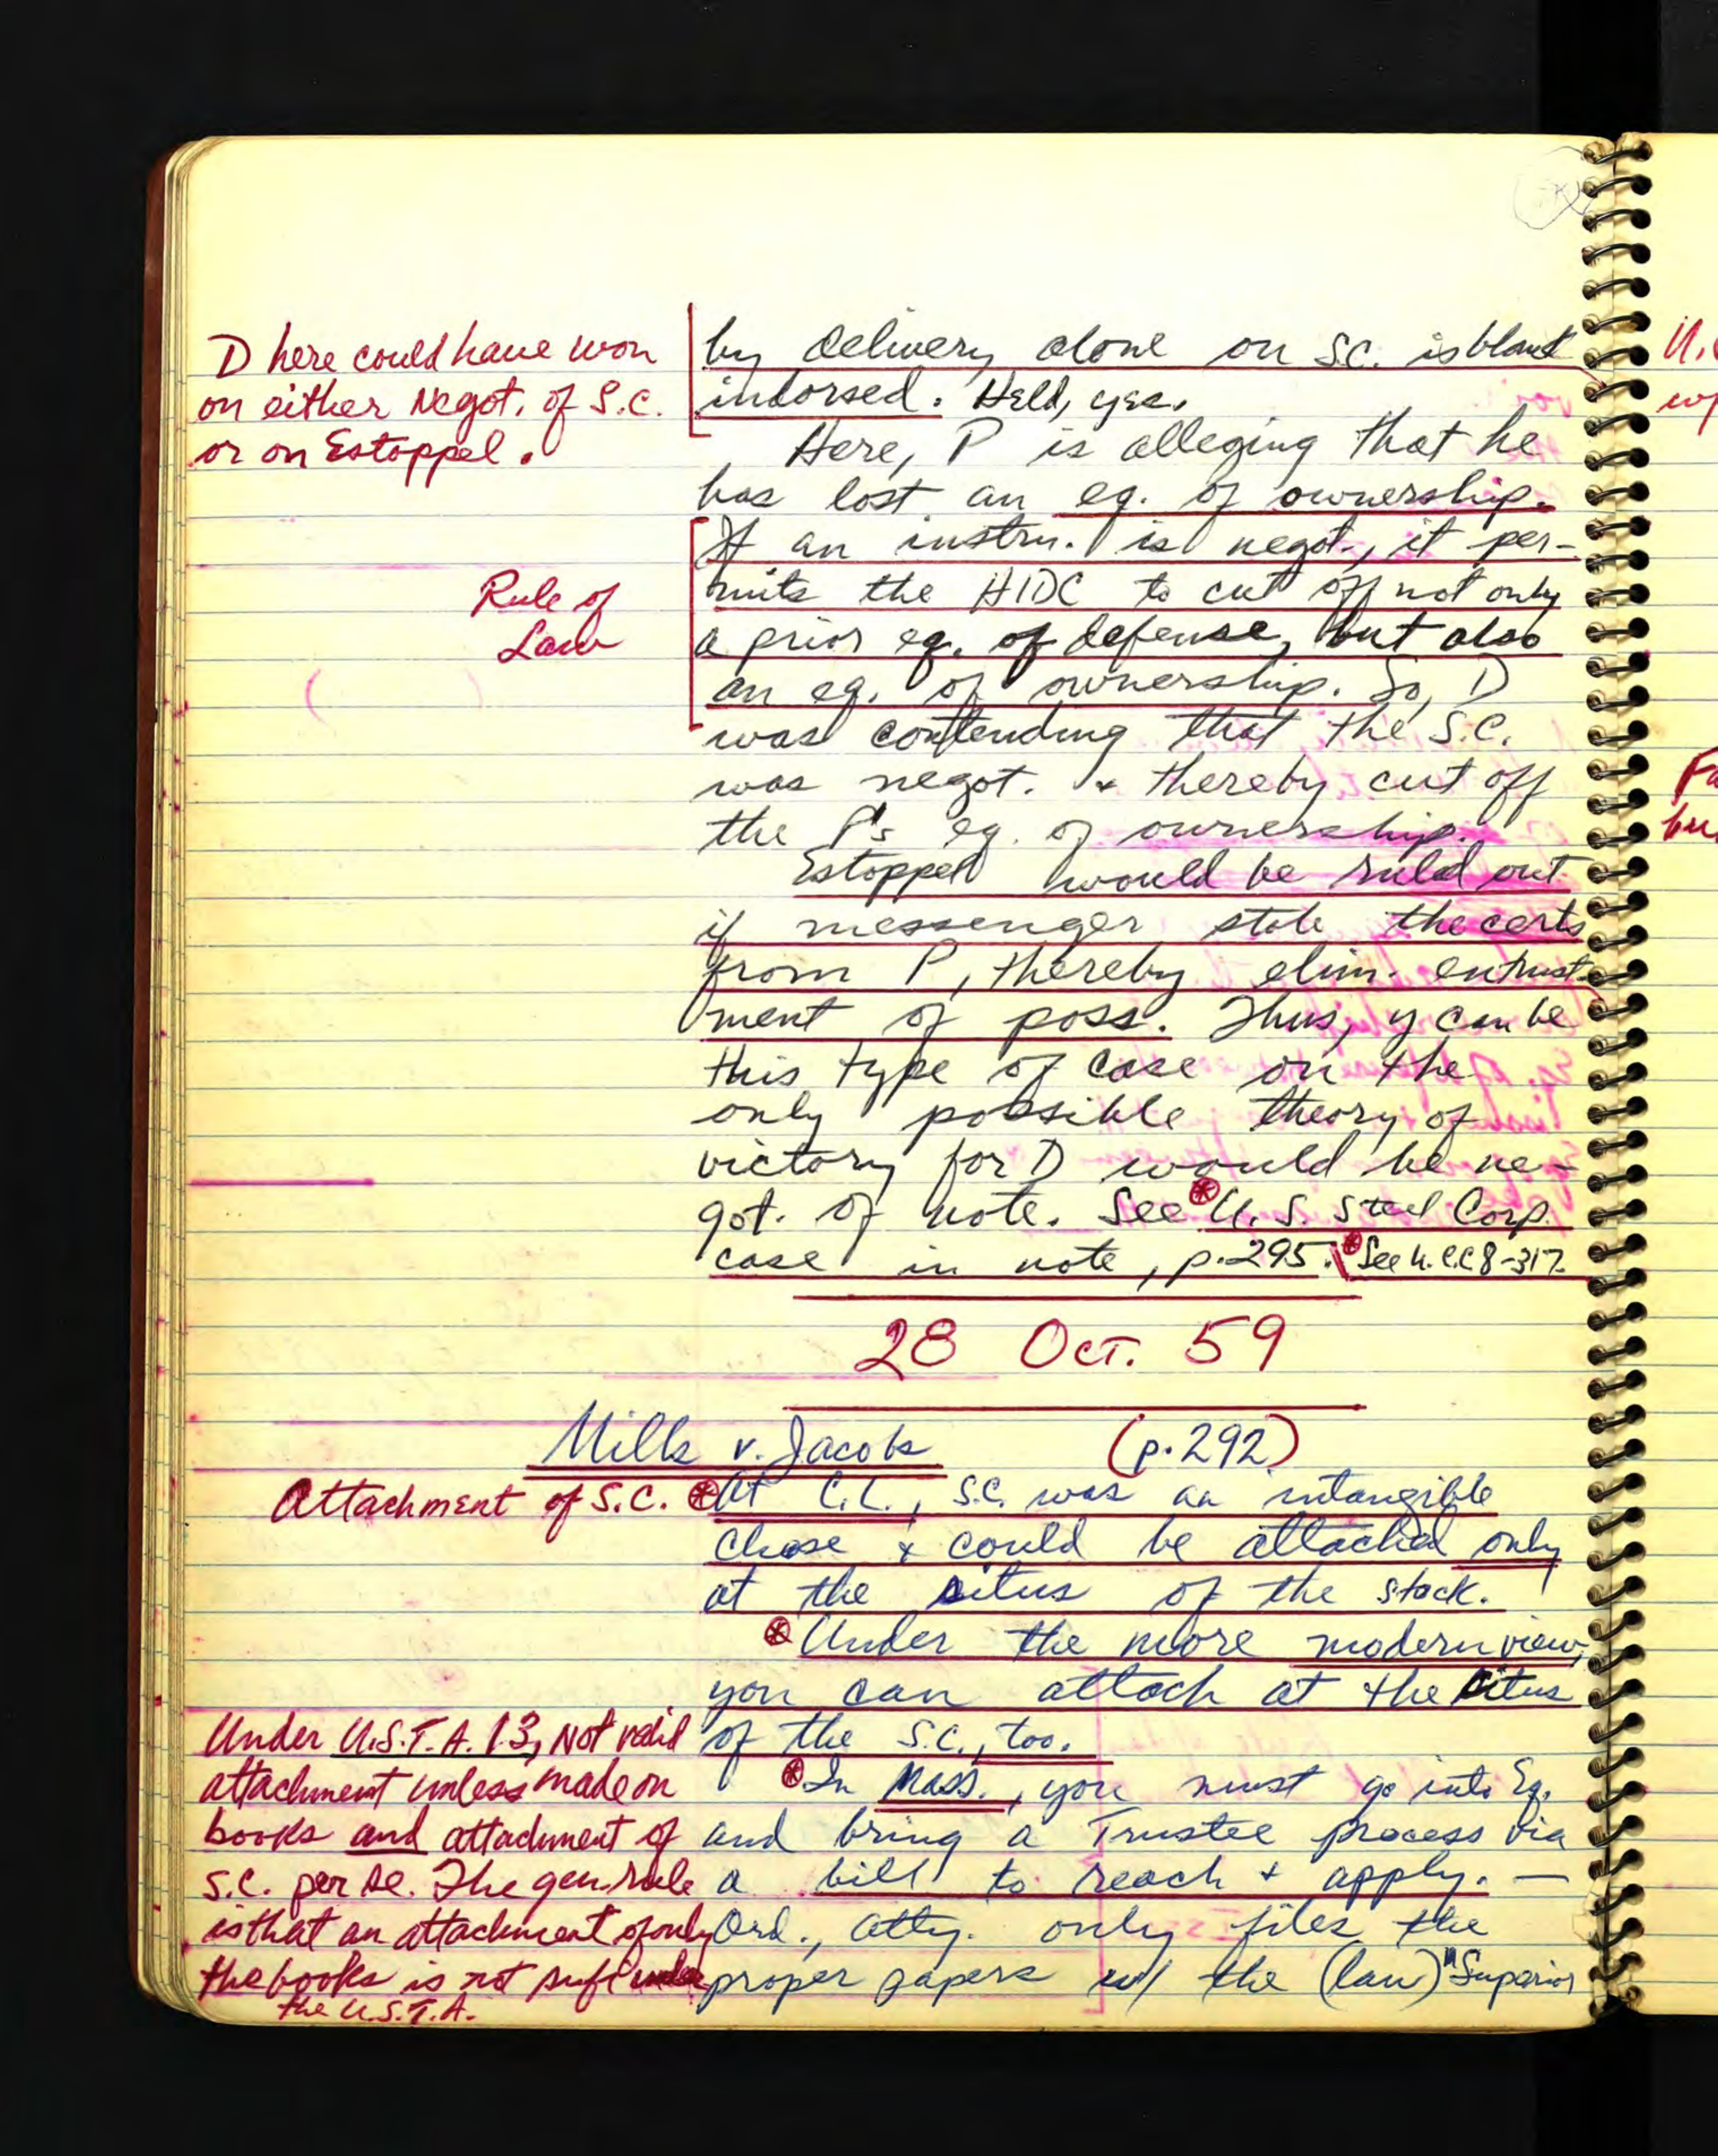 D here could have won
on either Negot. of S.C.
or on Estoppel.
by delivery alone on S.C. is blank
indorsed. Held, yes.
Here, P is alleging that he
has lost an eq. of ownership.
Rule of
Law
If an instru. is negot., it per-
mits the HIDC to cut off not only
a prior eq. of defense, but also
an eq. of ownership. So, D
was contending that the S.C.
was negot. & thereby cut off
the P's eq. of ownership.
Estoppel would be ruled out
if messenger stole the certs
from P, thereby elim. entrust-
ment of poss. Thus, y can be
this type of case on the
only possible theory of
victory for D would be ne-
got. of note. See U.S. Steel Corp.
case in note, p.295. See U.C.C 8-317.
28 Oct. 59
Mills v. Jacobs (p.292)
Attachment of S.C.
At C.L., S.C. was an intangible
chose & could be attached only
at the situs of the stock.
Under the more modern view,
you can attach at the situs
of the S.C., too.
Under U.S.T.A. 13, Not valid
attachment unless made on
books and attachment of
S.C. per se. The gen. rule
is that an attachment of only
the books is not suf
the U.S.T.A.
In Mass., you must go into Eq.
and bring a Trustee process via
a bill to reach & apply. —
Ord., atty. only files the
proper papers w/ the (law) "Superior
U.
w/
Fa
bu